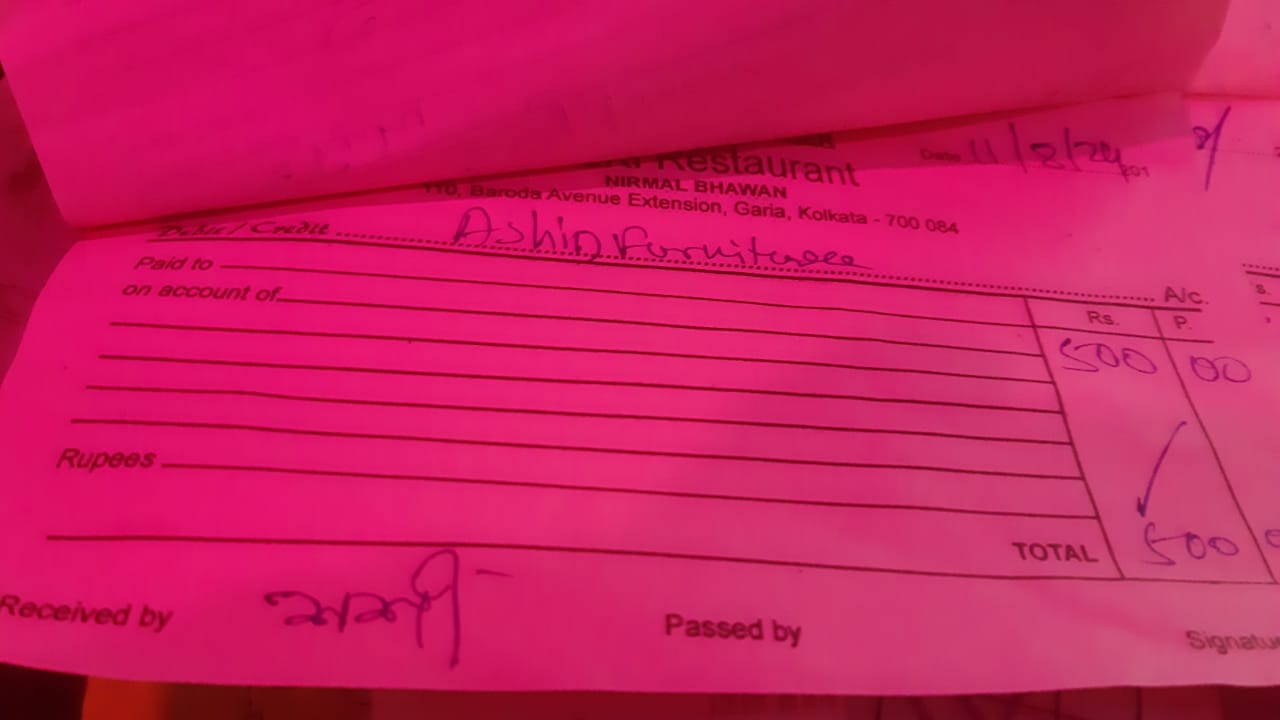 Restaurant
NIRMAL BHAWAN
110, Baroda Avenue Extension, Garia, Kolkata - 700 084
Date 11/8/24 201
Debit / Credit A/c.
Paid to
on account of
Rs. P.
500 00
Rupees
TOTAL 500
Received by
Passed by